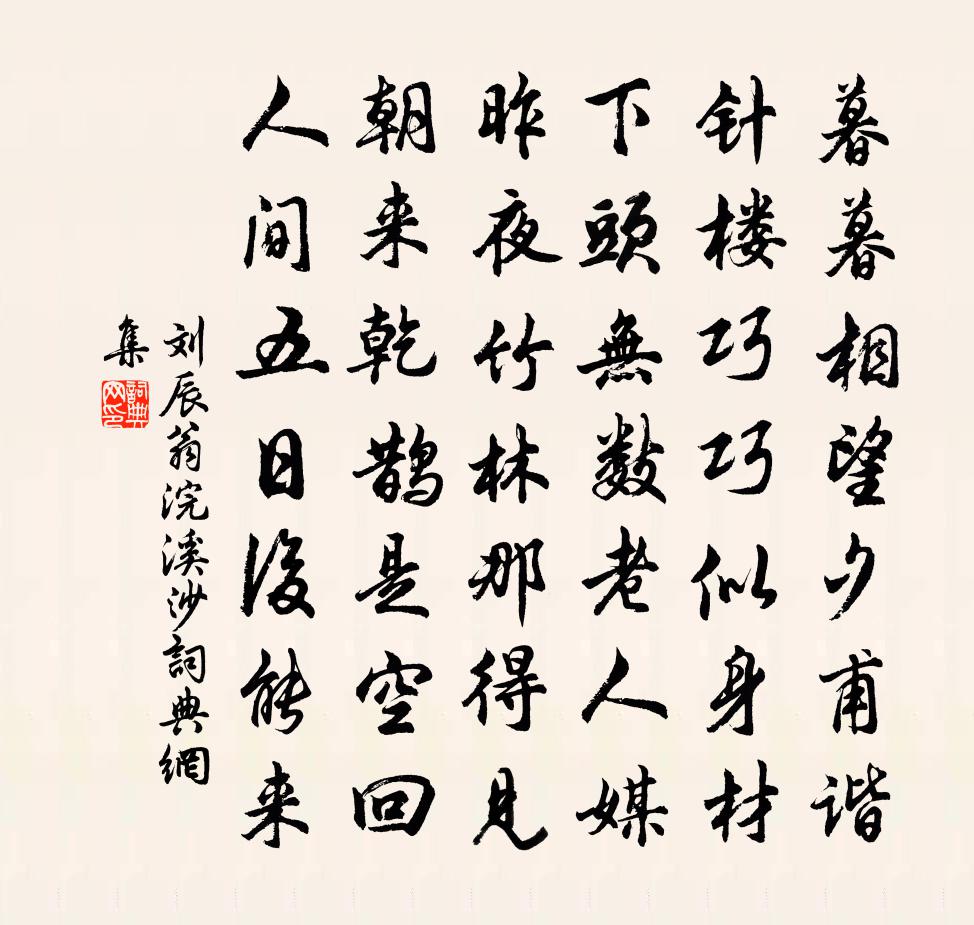 暮暮相望夕甫谐
针楼巧巧似身材
下頭無数老人媒
昨夜竹林那得见
朝来乾鹊是空回
人间五日後能来
刘辰翁浣溪沙詞典網
集
詞典网印